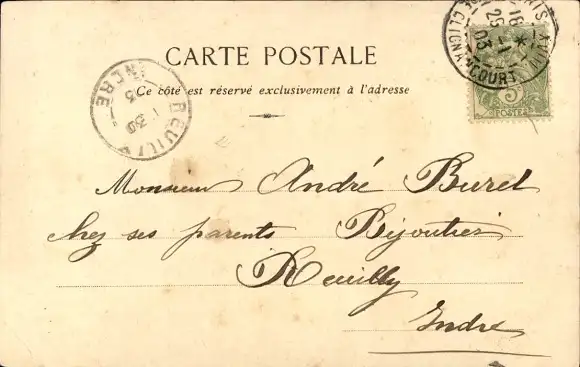 CARTE POSTALE
Ce côté est réservé exclusivement à l'adresse
PARIS XVIII
CLIGNANCOURT
18
29 -1
03
5c
POSTES
REUILLY
INDRE
30
Monsieur André Buret
chez ses parents Bijoutier
Reuilly
Indre